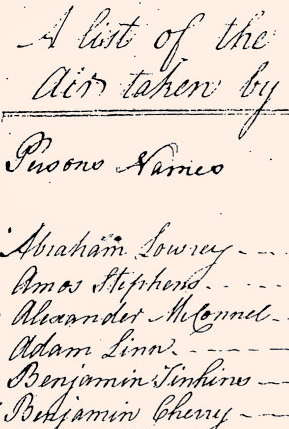 A list of the
Air taken by
Persons Names
Abraham Lowrey
Amos Stephens
Alexander McConnel
Adam Linn
Benjamin Jinkins
Benjamin Cherry